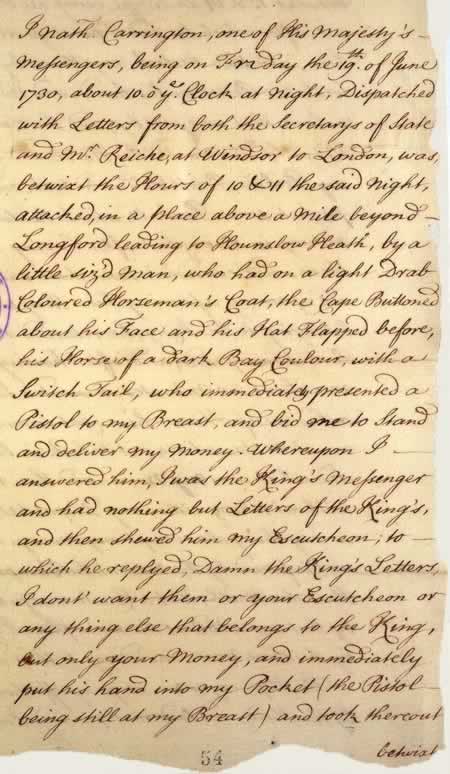 I Nath. Carrington, one of His Majesty's
Messengers, being on Friday the 19th. of June
1730, about 10. o'ye. Clock at Night, Dispatched
with Letters from both the Secretarys of State
and Mr. Reiche, at Windsor to London, was,
betwixt the Hours of 10 & 11 the said Night,
attacked, in a place above a Mile beyond
Longford leading to Hounslow Heath, by a
little siz'd Man, who had on a light Drab
Coloured Horseman's Coat, the Cape Buttoned
about his Face and his Hat Flapped before,
his Horse of a dark Bay Coulour, with a
Switch Tail, who immediately presented a
Pistol to my Breast, and bid me to Stand
and deliver my Money. Whereupon I
answered him, I was the King's Messenger
and had nothing but Letters of the King's,
and then shewed him my Escutcheon; to
which he replyed, Damn the King's Letters,
I dont' want them or your Escutcheon or
any thing else that belongs to the King,
but only your Money, and immediately
put his hand into my Pocket (the Pistol
being still at my Breast) and took thereout
betwixt
54